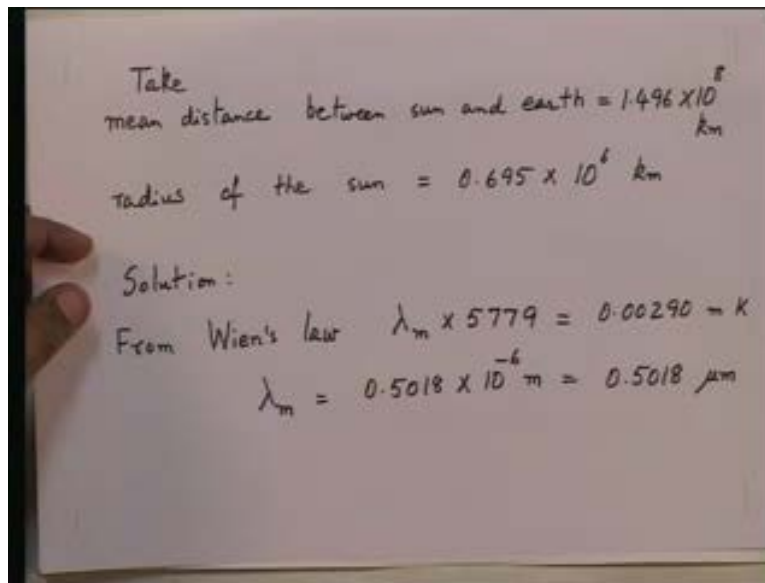 Take
mean distance between sun and earth = 1.496 × 10⁸ km
radius of the sun = 0.695 × 10⁶ km
Solution:
From Wien's law λₘ × 5779 = 0.00290 m K
λₘ = 0.5018 × 10⁻⁶ m = 0.5018 μm